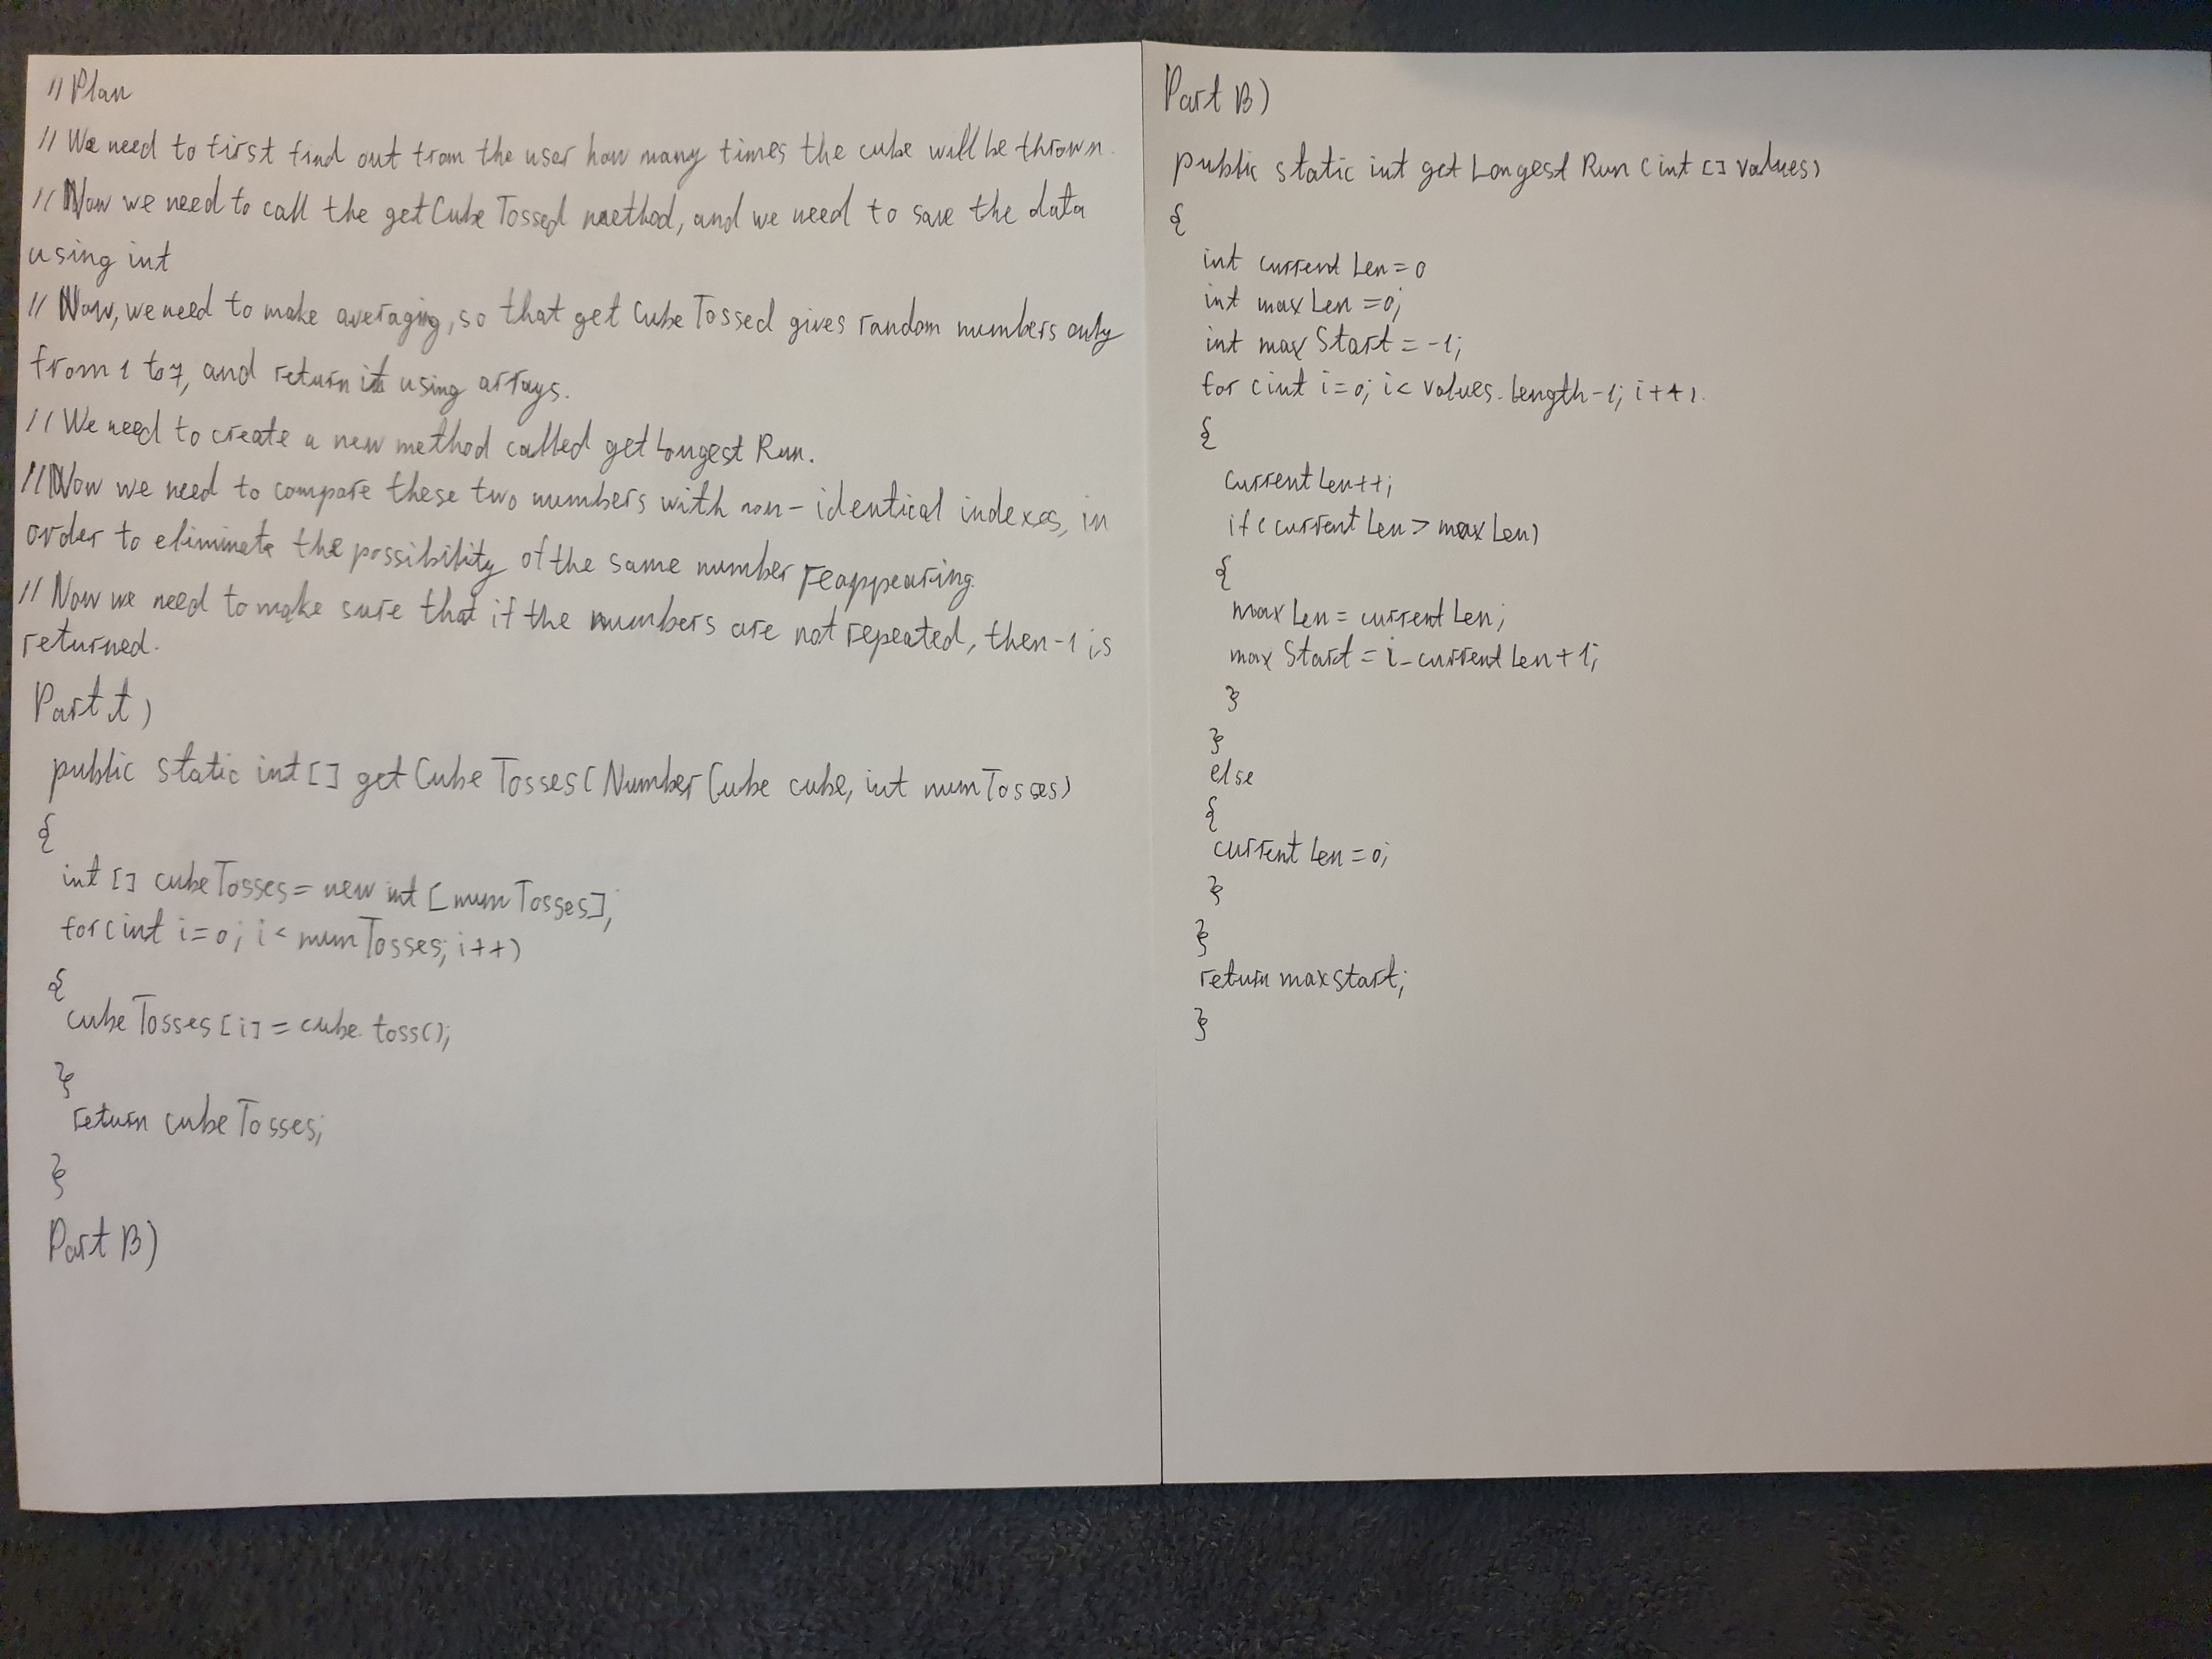 // Plan
// We need to first find out from the user how many times the cube will be thrown.
// Now we need to call the getCubeTossed method, and we need to save the data
using int
// Now, we need to make averaging, so that getCubeTossed gives random numbers only
from 1 to 7, and return it using arrays.
// We need to create a new method called getLongestRun.
// Now we need to compare these two numbers with non-identical indexes, in
order to eliminate the possibility of the same number reappearing
// Now we need to make sure that if the numbers are not repeated, then -1 is
returned.
public static int[] getCubeTosses(NumberCube cube, int numTosses)
{
int [] cubeTosses = new int [numTosses];
for(int i=0; i< numTosses; i++)
{
cubeTosses[i] = cube.toss();
}
return cubeTosses;
}
Part B)
Part B)
public static int getLongestRun (int [] values)
{
int currentLen=0
int maxLen=0;
int maxStart=-1;
for (int i=0; i< values.length-1; i++)
{
currentLen++;
if(currentLen > maxLen)
{
maxLen = currentLen;
maxStart = i-currentLen+1;
}
}
else
{
currentLen=0;
}
}
return maxstart;
}